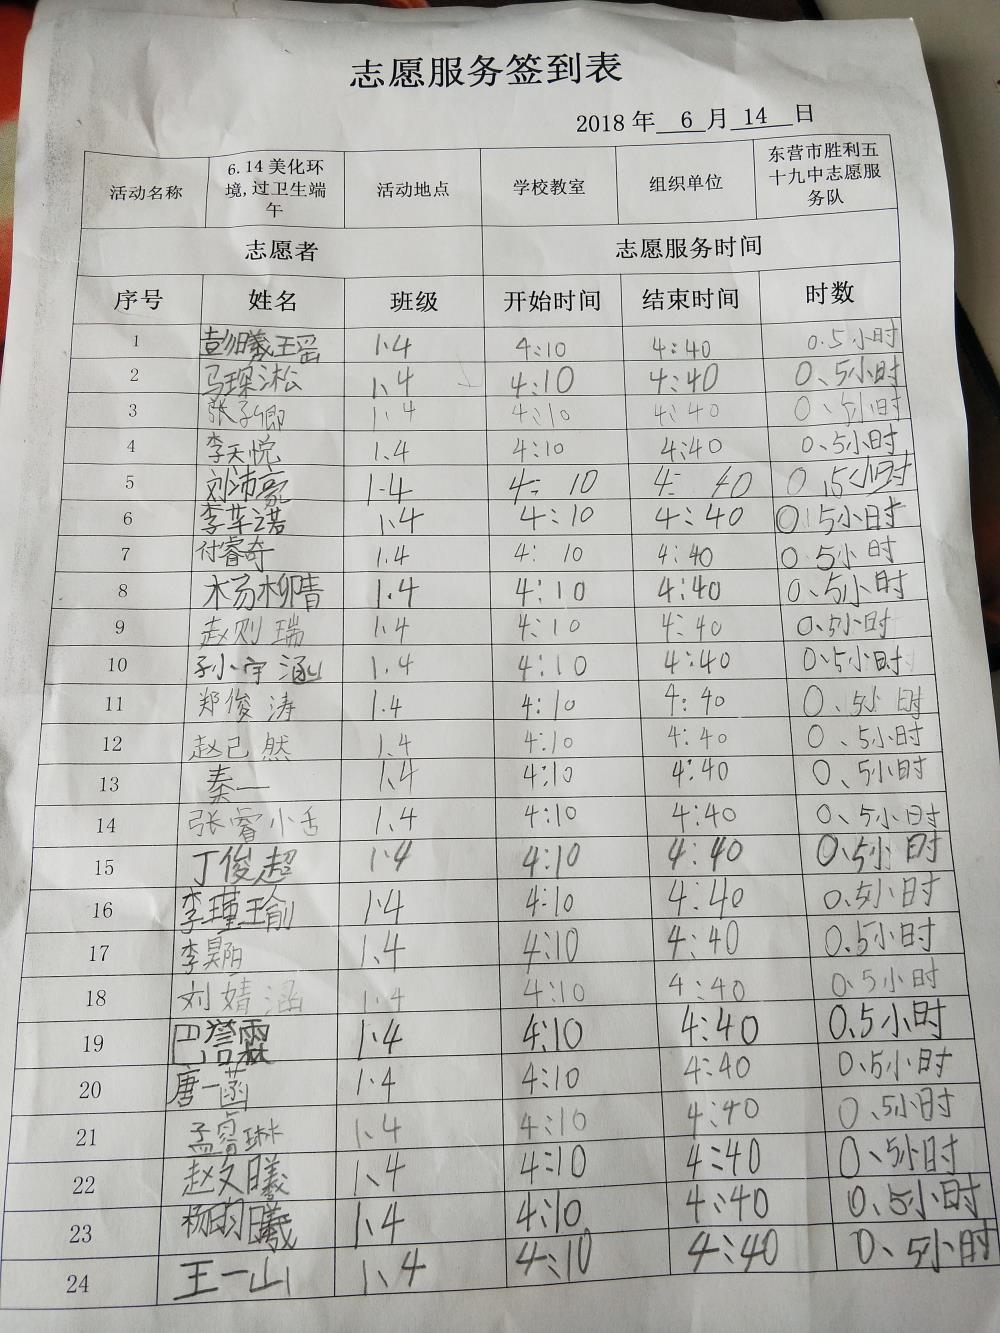 志愿服务签到表
2018 年 6 月 14 日
活动名称 6.14 美化环境,过卫生端午 活动地点 学校教室 组织单位 东营市胜利五十九中志愿服务队
志愿者 志愿服务时间
序号 姓名 班级 开始时间 结束时间 时数
1 彭曦瑶 1.4 4:10 4:40 0.5小时
2 马琛淞 1、4 4:10 4:40 0、5小时
3 张子卿 1.4 4:10 4:40 0、5小时
4 李天悦 1.4 4:10 4:40 0、5小时
5 刘沛豪 1.4 4:10 4:40 0.5小时
6 李芊诺 1.4 4:10 4:40 0.5小时
7 付睿奇 1.4 4:10 4:40 0.5小时
8 杨柳青 1.4 4:10 4:40 0.5小时
9 赵则瑞 1.4 4:10 4:40 0.5小时
10 孙宇涵 1.4 4:10 4:40 0.5小时
11 郑俊涛 1.4 4:10 4:40 0.5小时
12 赵已然 1.4 4:10 4:40 0、5小时
13 秦一 1、4 4:10 4:40 0、5小时
14 张睿 1、4 4:10 4:40 0、5小时
15 丁俊超 1.4 4:10 4:40 0.5小时
16 李瑾瑜 1.4 4:10 4:40 0.5小时
17 李昊阳 1、4 4:10 4:40 0.5小时
18 刘婧涵 1.4 4:10 4:40 0.5小时
19 巴誉霖 1.4 4:10 4:40 0.5小时
20 唐一菡 1.4 4:10 4:40 0.5小时
21 孟睿琳 1、4 4:10 4:40 0、5小时
22 赵文曦 1、4 4:10 4:40 0、5小时
23 杨雨曦 1、4 4:10 4:40 0、5小时
24 王一山 1、4 4:10 4:40 0、5小时